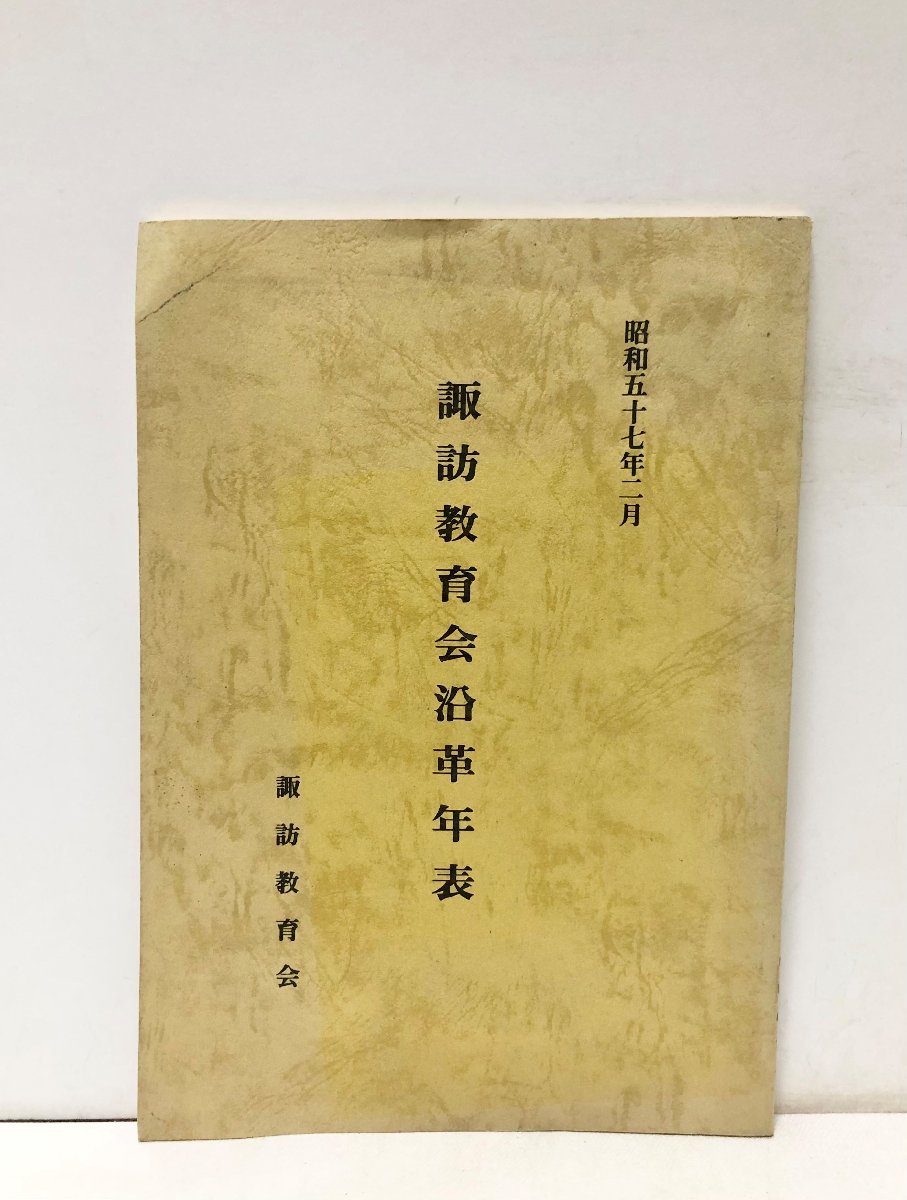 昭和五十七年二月
諏訪教育会沿革年表
諏訪教育会